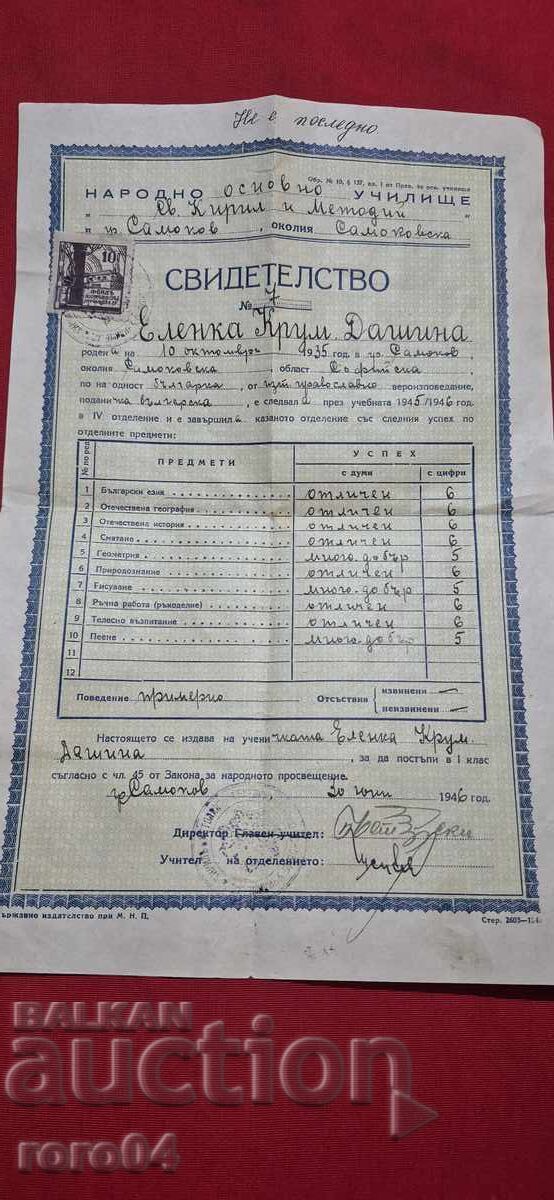 Не е последно.
Обр. № 10, § 137, ал. 1 от Прав. за осн. училища
НАРОДНО основно УЧИЛИЩЕ
„ Св. Кирил и Методий “
гр. Самоков, околия Самоковска
10
СВИДЕТЕЛСТВО
№ 7
Еленка Крум. Дашина
родена на 10 октомврий 1935 год. в гр. Самоков,
околия Самоковска, област Софийска
по народност българка, от изт. православно вероизповедание,
поданичка българска, е следвала през учебната 1945/1946 год.
в IV отделение и е завършила казаното отделение със следния успех по
отделните предмети:
№ по ред
ПРЕДМЕТИ
УСПЕХ
с думи
с цифри
1 Български език отличен 6
2 Отечествена география отличен 6
3 Отечествена история отличен 6
4 Смятане отличен 6
5 Геометрия много добър 5
6 Природознание отличен 6
7 Рисуване много добър 5
8 Ръчна работа (ръкоделие) отличен 6
9 Телесно възпитание отличен 6
10 Пеене много добър 5
11
12
Поведение примерно Отсъствия извинени —
неизвинени —
Настоящето се издава на ученичката Еленка Крум.
Дашина, за да постъпи в I клас
съгласно с чл. 45 от Закона за народното просвещение.
гр. Самоков, 30 юни 1946 год.
Директор Главен учител:
Учител на отделението:
ържавно издателство при М. Н. П.
Стр. 2605
BALKAN
auction
roro04